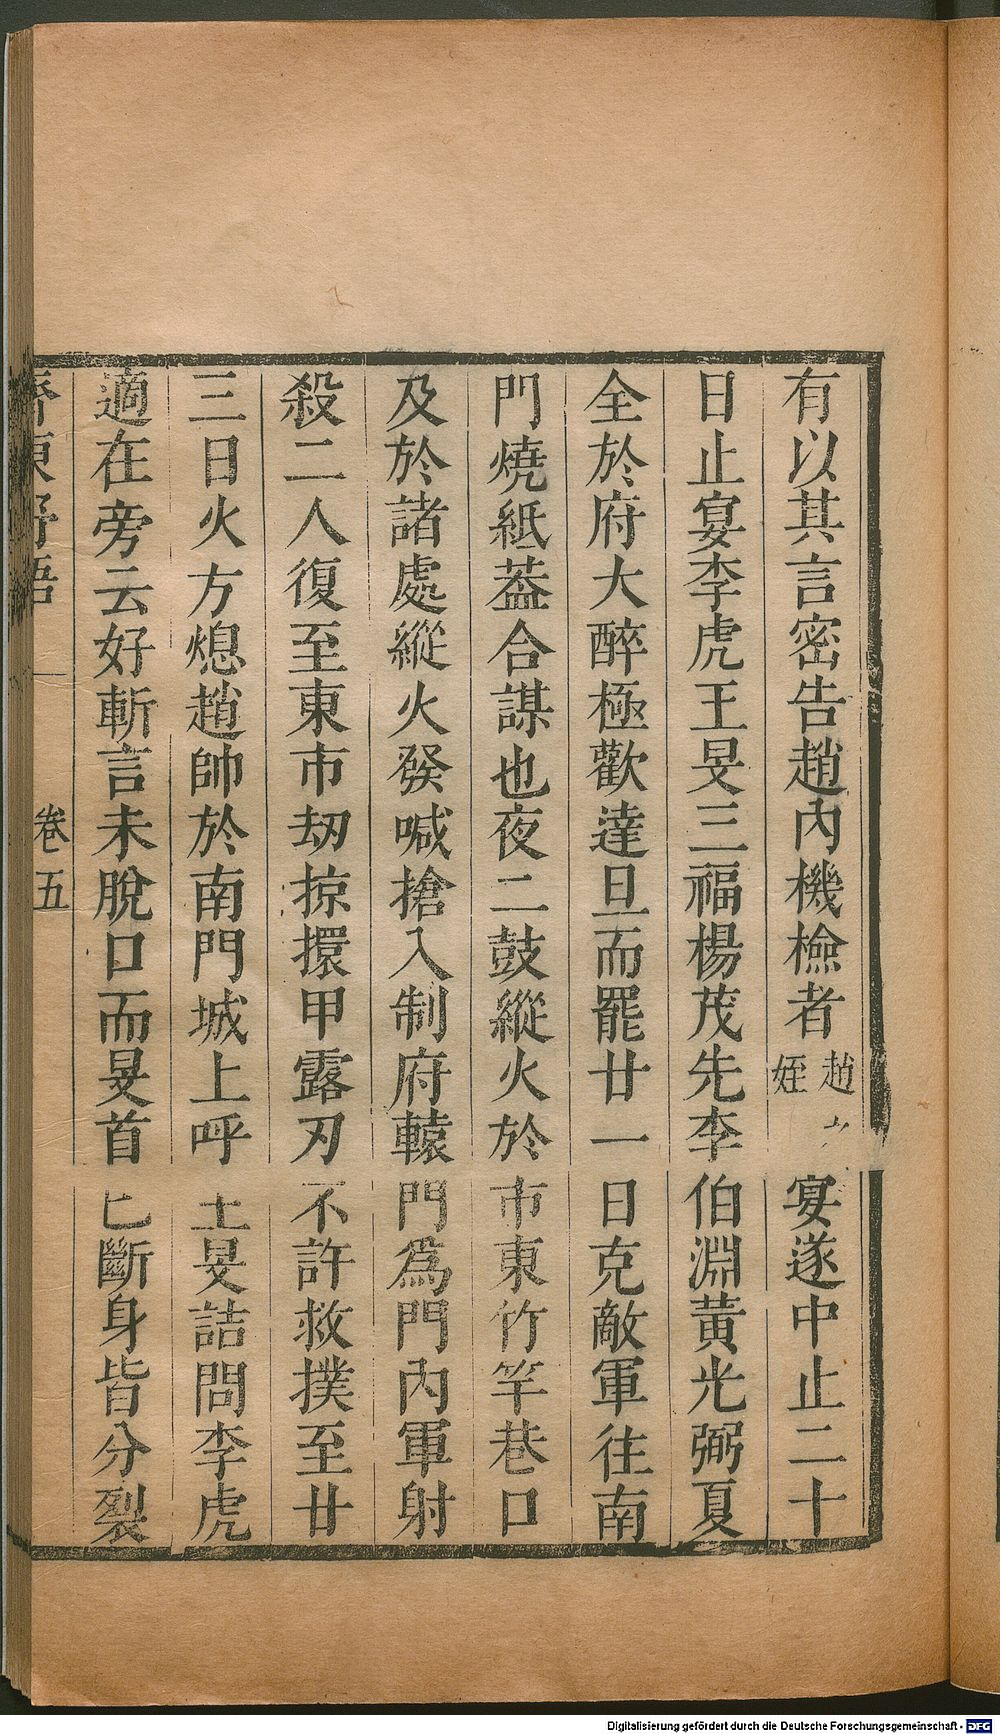 有以其言密告趙內機檢者趙姪宴遂中止二十
日止宴李虎王旻三福楊茂先李伯淵黃光弼夏
全於府大醉極歡達旦而罷廿一日克敵軍往南
門燒紙葢合謀也夜二鼓縱火於市東竹竿巷口
及於諸處縱火發喊搶入制府轅門爲門內軍射
殺二人復至東市刼掠擐甲露刃不許救撲至廿
三日火方熄趙帥於南門城上呼王旻詰問李虎
適在旁云好斬言未脫口而旻首已斷身皆分裂
齊東野語 卷五
Digitalisierung gefördert durch die Deutsche Forschungsgemeinschaft - DFG